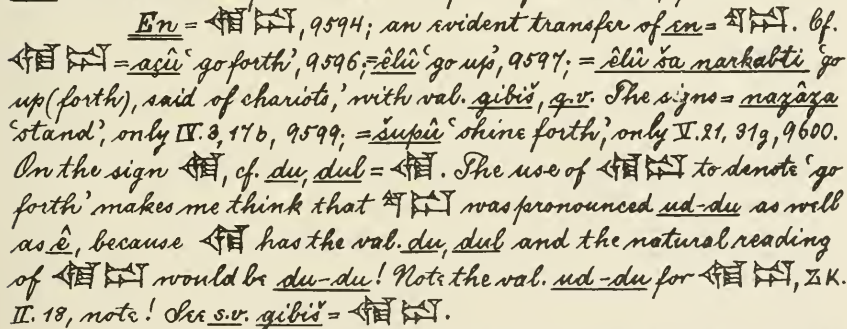 En = 𒇯𒁺, 9594; an evident transfer of en = 𒌓𒁺. Cf.
𒇯𒁺 = açû ‘go forth’, 9596; = êlû ‘go up’, 9597; = êlû ša narkabti ‘go
up (forth), said of chariots,’ with val. gibiš, q.v. The signs = nazâza
‘stand’, only IV. 3, 17b, 9599; = šupû ‘shine forth’, only V. 21, 31g, 9600.
On the sign 𒇯, cf. du, dul = 𒇯. The use of 𒇯𒁺 to denote ‘go
forth’ makes me think that 𒌓𒁺 was pronounced ud-du as well
as ê, because 𒇯 has the val. du, dul and the natural reading
of 𒇯𒁺 would be du-du! Note the val. ud-du for 𒇯𒁺, ZK.
II. 18, note! See s.v. gibiš = 𒇯𒁺.